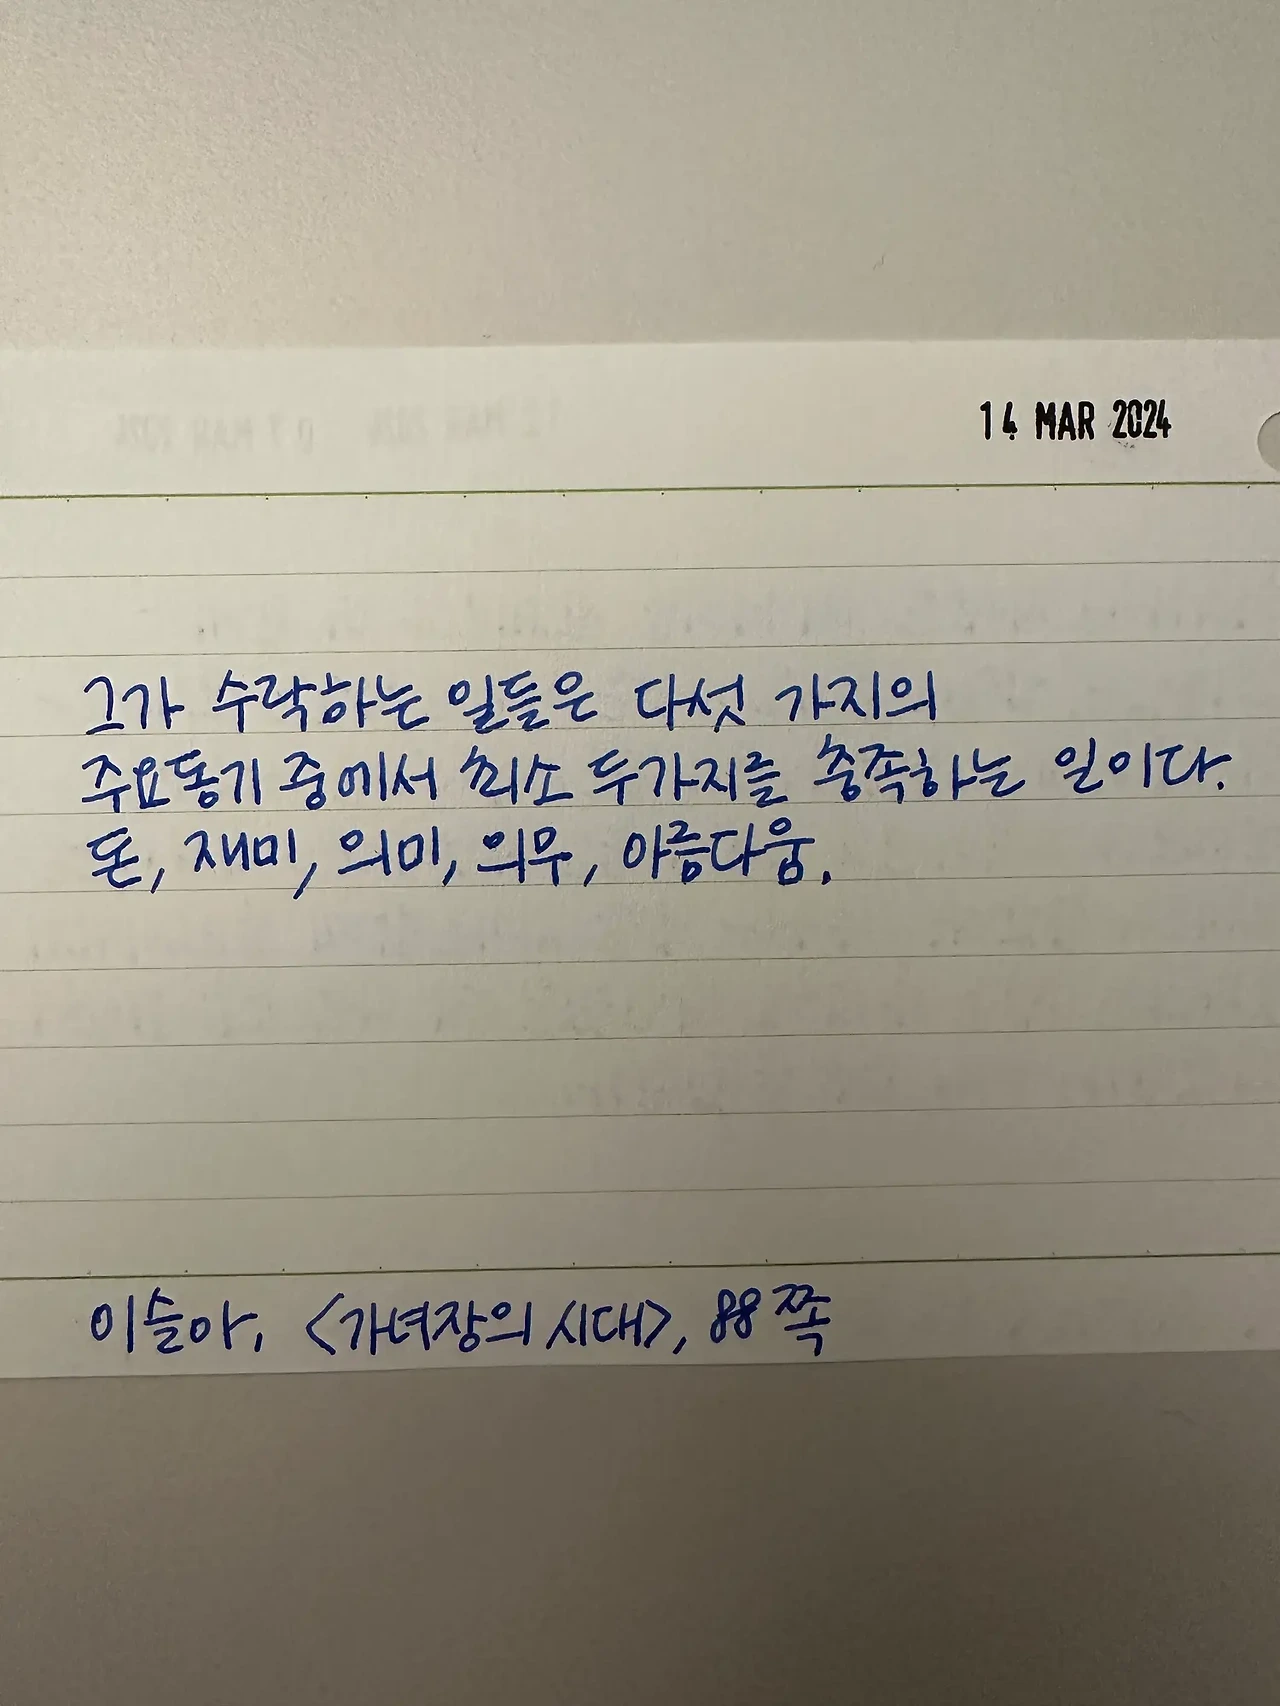 14 MAR 2024
그가 수락하는 일들은 다섯 가지의
주요동기 중에서 최소 두가지를 충족하는 일이다.
돈, 재미, 의미, 의무, 아름다움.
이슬아, <가녀장의 시대>, 88쪽